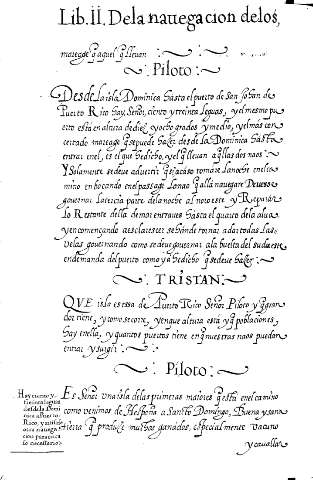 Lib. II. De la nauegacion de los,
matage q̃ aquel q̃ lleuan
Piloto
Desde la isla Dominica hasta el puerto de san Johan de
Puerto Rico hay, Señor, ciento y treinta leguas, y el mesmo pu
erto está en altura de diez y ocho grados y medio, y el mas con
certado matage q̃ se puede hazer desde la Dominica hasta
entrar en el, es el que he dicho, y el q̃ lleuan aq̃llas dos naos
Y solamente se deue aduertir q̃ si acaso tomare la noche en el ca
mino en bocando en el passage
gouernar la tercia parte de la noche al noroeste y Reparar
lo Restante de la demora entraues hasta el quarto del alua
y en comenzando a esclarescer se han de tornar a dar todas las
velas gouernando como se deue gouernar a la buelta del sudueste
en demanda del puerto como ya he dicho q̃ se deue hazer
TRISTAN
QVE isla es essa de Puerto Rico Señor Piloto y q̃ gran
dor tiene, y como se corre, y en que altura está y q̃ poblaciones
hay en ella, y quantos puertos tiene en q̃ nuestras naos puedan
entrar y surgir
Piloto
Es Señor una isla de las primeras maiores q̃ está en el camino
como venimos de Hespaña a Santo Domingo, Buena y sana
tierra q̃ produze muchos ganados, especialmente vacuno
y cauallar
Hay ciento y
treinta leguas
desde la Domi
nica a Puerto
Rico, y auisos
en la nauega
cion para ello